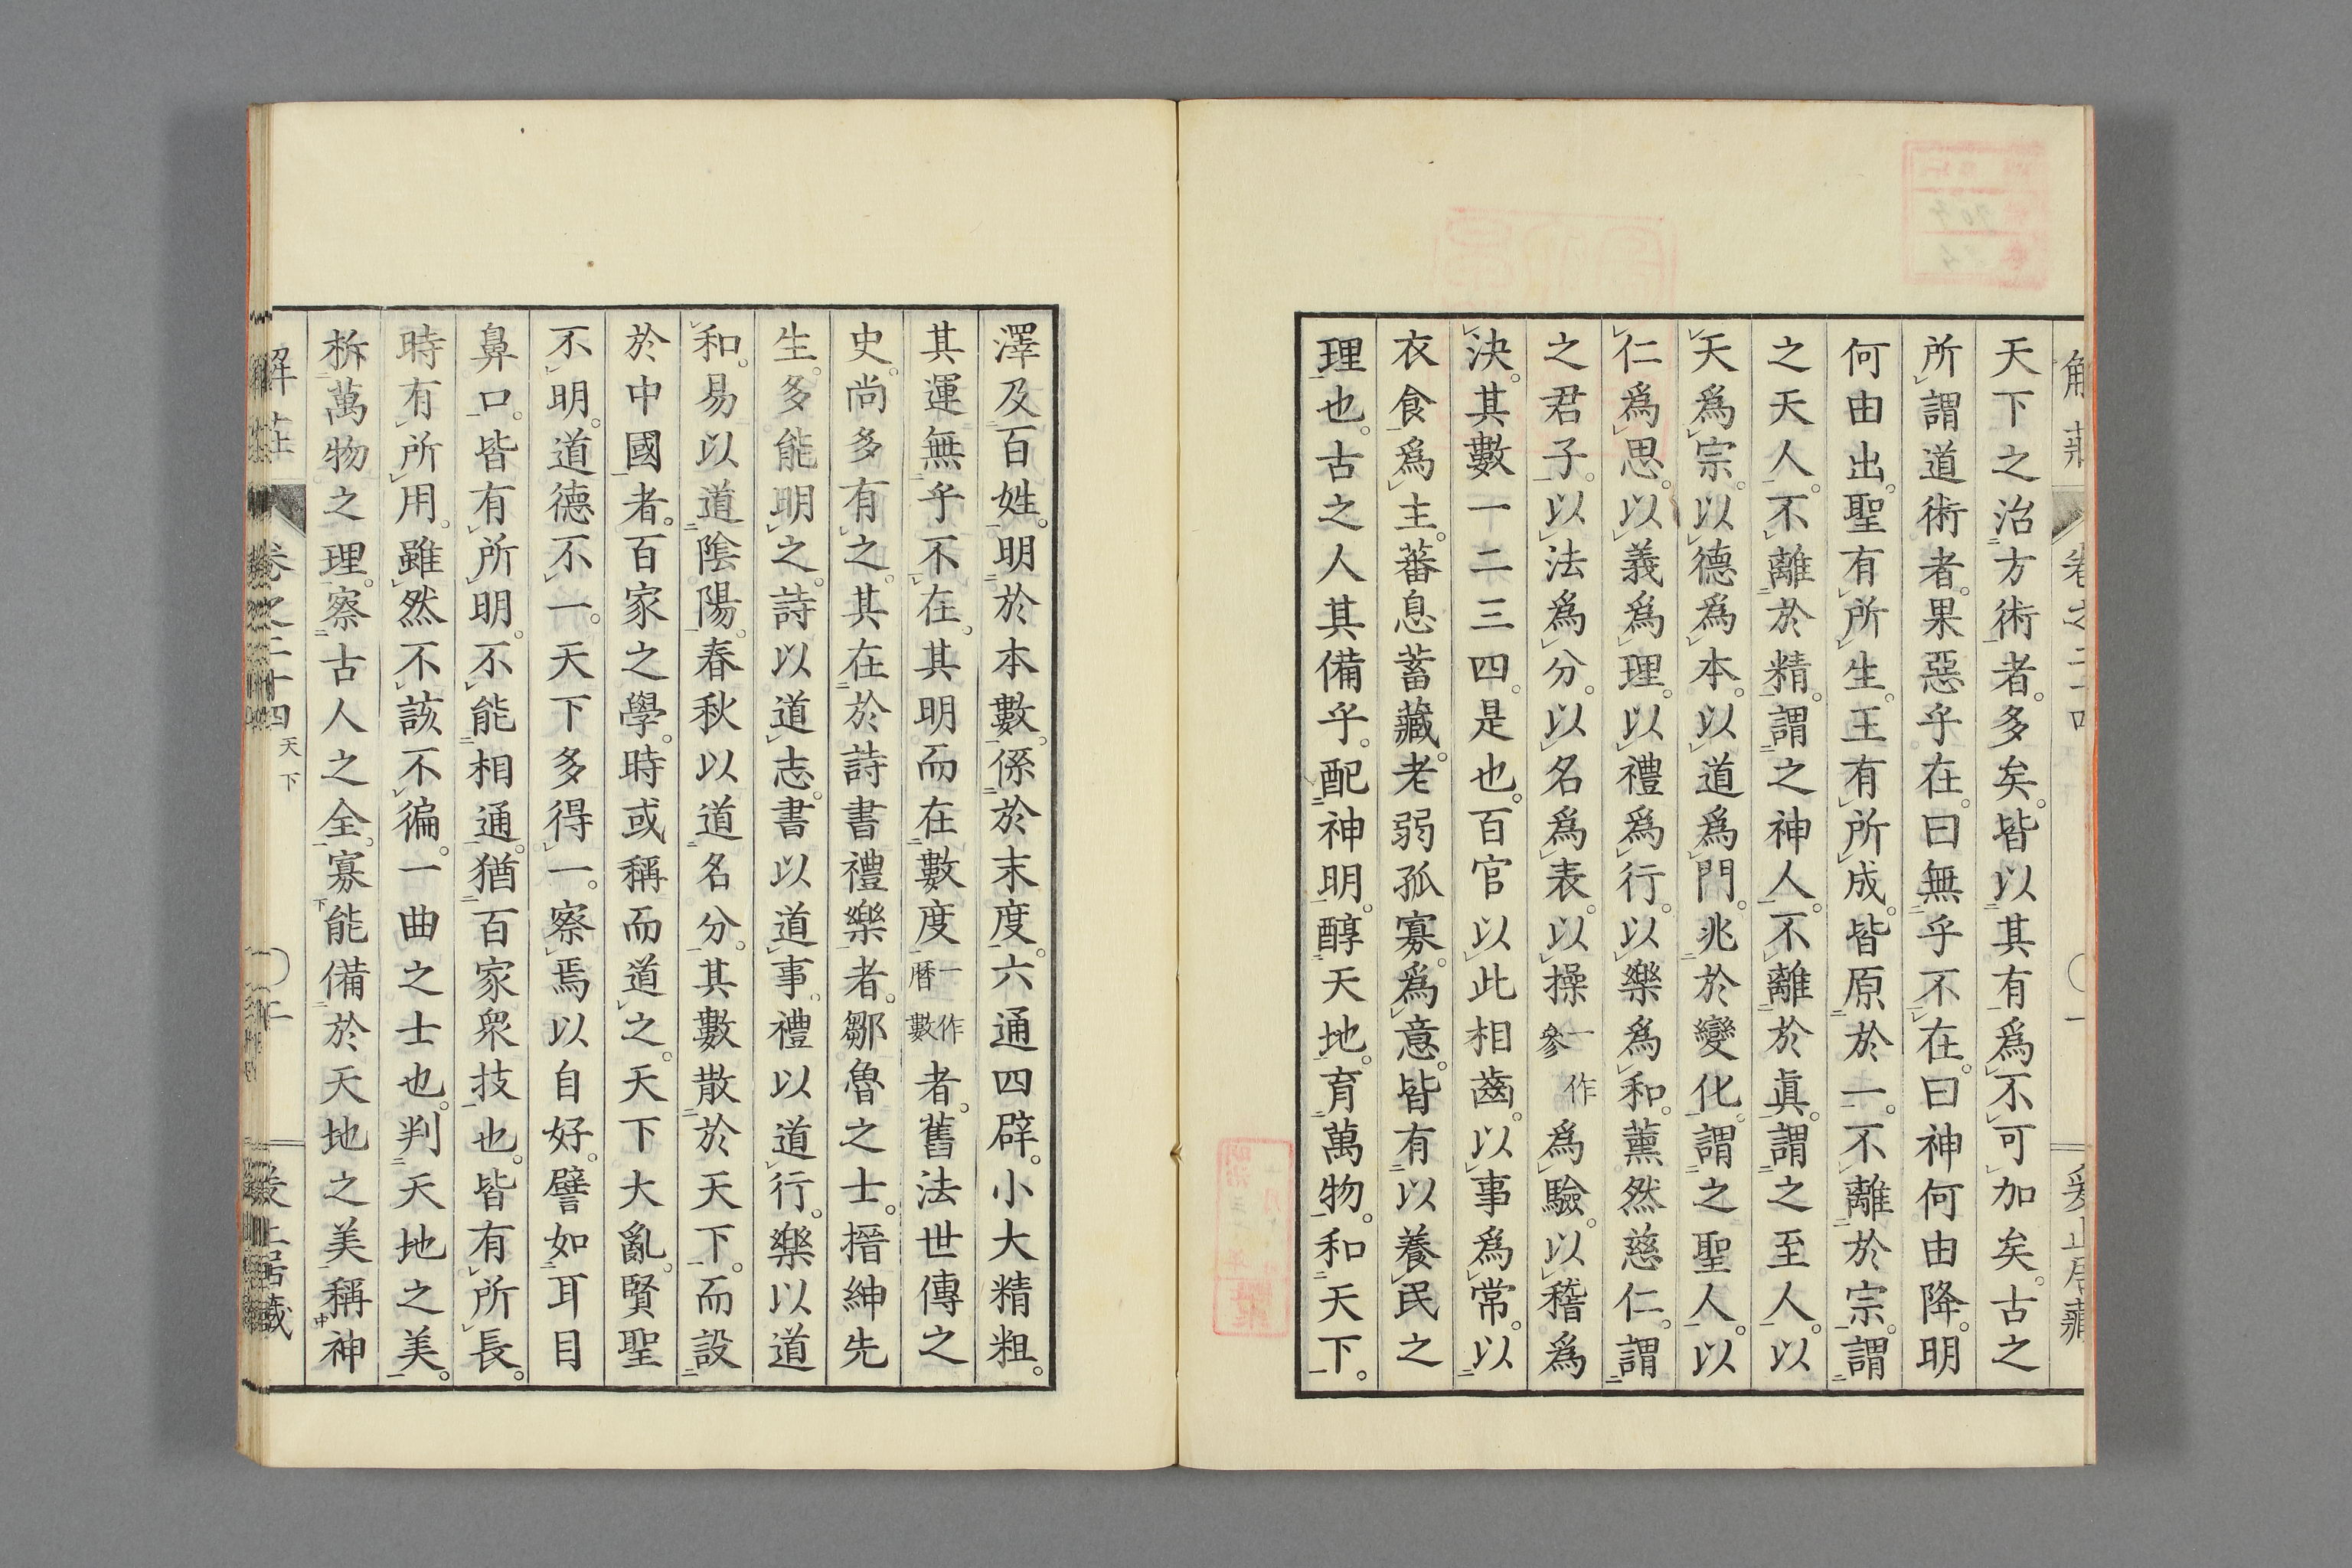 天下之治方術者。多矣。皆以其有爲不可加矣。古之
所謂道術者。果惡乎在。曰無乎不在。曰神何由降。明
何由出。聖有所生。王有所成。皆原於一。不離於宗。謂
之天人。不離於精。謂之神人。不離於眞。謂之至人。以
天爲宗。以德爲本。以道爲門。兆於變化。謂之聖人。以
仁爲思。以義爲理。以禮爲行。以樂爲和。薰然慈仁。謂
之君子。以法爲分。以名爲表。以操一作參爲驗。以稽爲
決。其數一二三四。是也。百官以此相齒。以事爲常。以
衣食爲主。蕃息蓄藏。老弱孤寡。爲意。皆有以養民之
理也。古之人其備乎。配神明。醇天地。育萬物。和天下。
澤及百姓。明於本數。係於末度。六通四辟。小大精粗。
其運無乎不在。其明而在數度一作曆數者。舊法世傳之
史。尚多有之。其在於詩書禮樂者。鄒魯之士。搢紳先
生。多能明之。詩以道志。書以道事。禮以道行。樂以道
和。易以道陰陽。春秋以道名分。其數散於天下。而設
於中國者。百家之學。時或稱而道之。天下大亂。賢聖
不明。道德不一。天下多得一。察焉以自好。譬如耳目
鼻口。皆有所明。不能相通。猶百家衆技也。皆有所長。
時有所用。雖然不該不徧。一曲之士也。判天地之美。
析萬物之理。察古人之全。寡能備於天地之美稱神
解莊 卷之二十四 天下 二